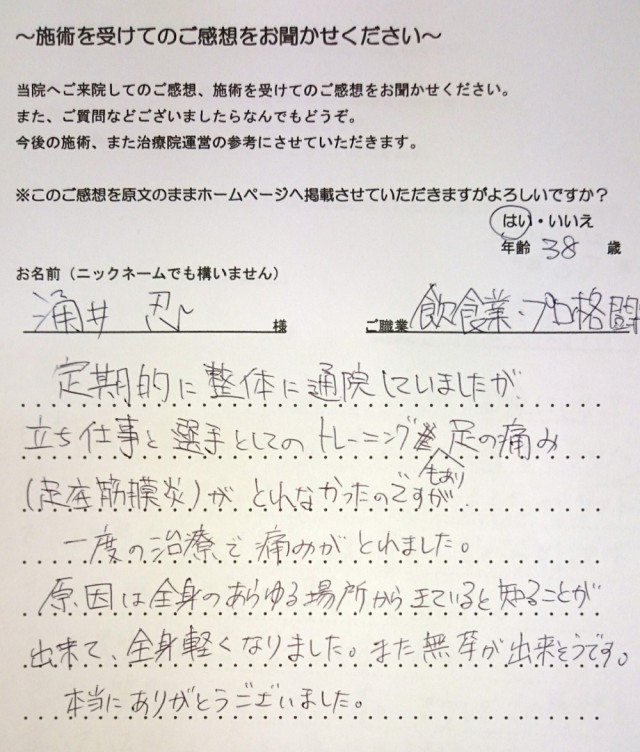 ～施術を受けてのご感想をお聞かせください～
当院へご来院してのご感想、施術を受けてのご感想をお聞かせください。
また、ご質問などございましたらなんでもどうぞ。
今後の施術、また治療院運営の参考にさせていただきます。
※このご感想を原文のままホームページへ掲載させていただきますがよろしいですか？
はい・いいえ
年齢 38 歳
お名前（ニックネームでも構いません）
涌井 忍 様 ご職業 飲食業・プロ格闘
定期的に整体に通院していましたが
立ち仕事と選手としてのトレーニング 足の痛み
もあり
(足底筋膜炎)が とれなかったのですが
一度の治療で痛みがとれました。
原因は全身のあらゆる場所から王ていると知ることが
出来て、全身軽くなりました。また無茶が出来そうです。
本当にありがとうございました。